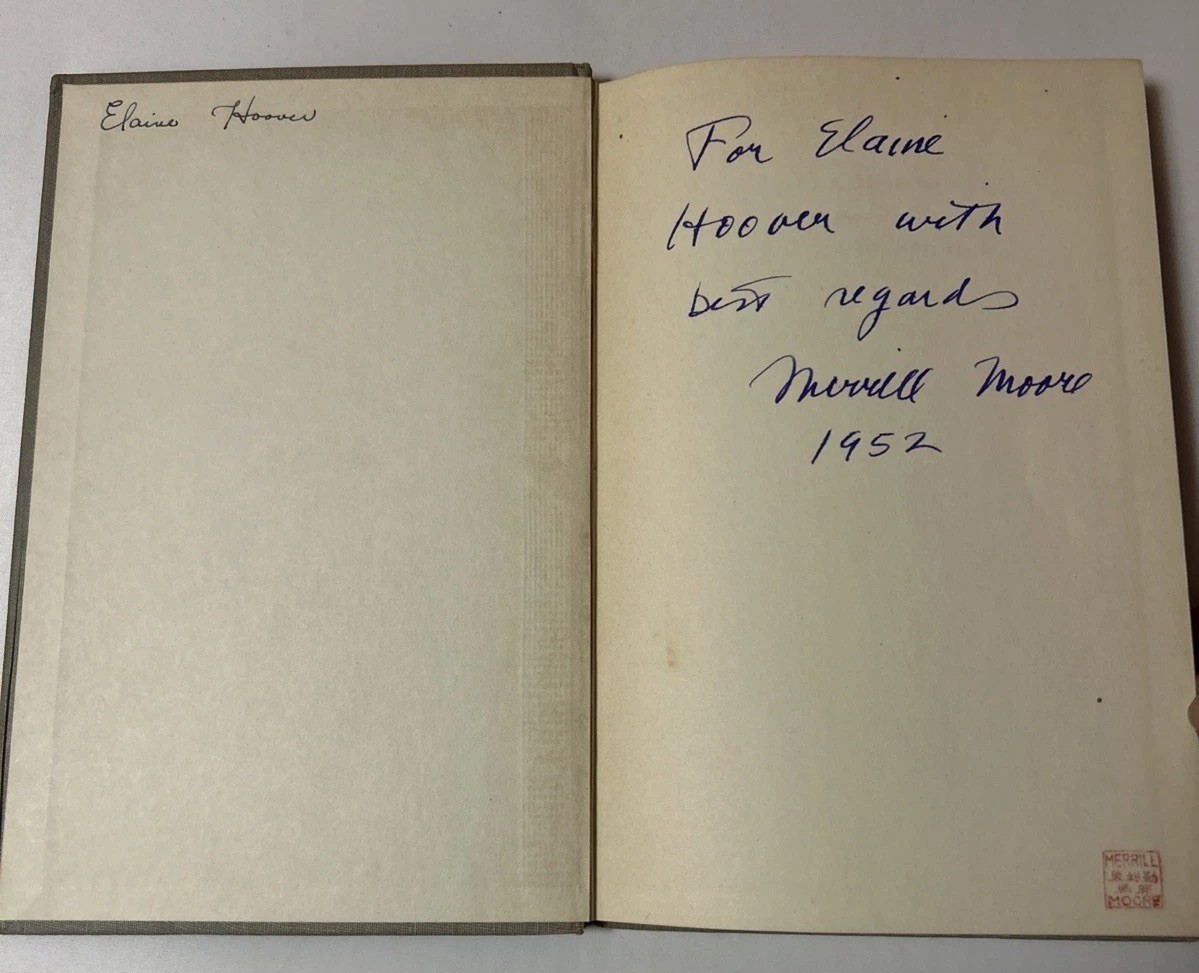 Elaine Hoover
For Elaine
Hoover with
best regards
Merrill Moore
1952
MERRILL
MOORE